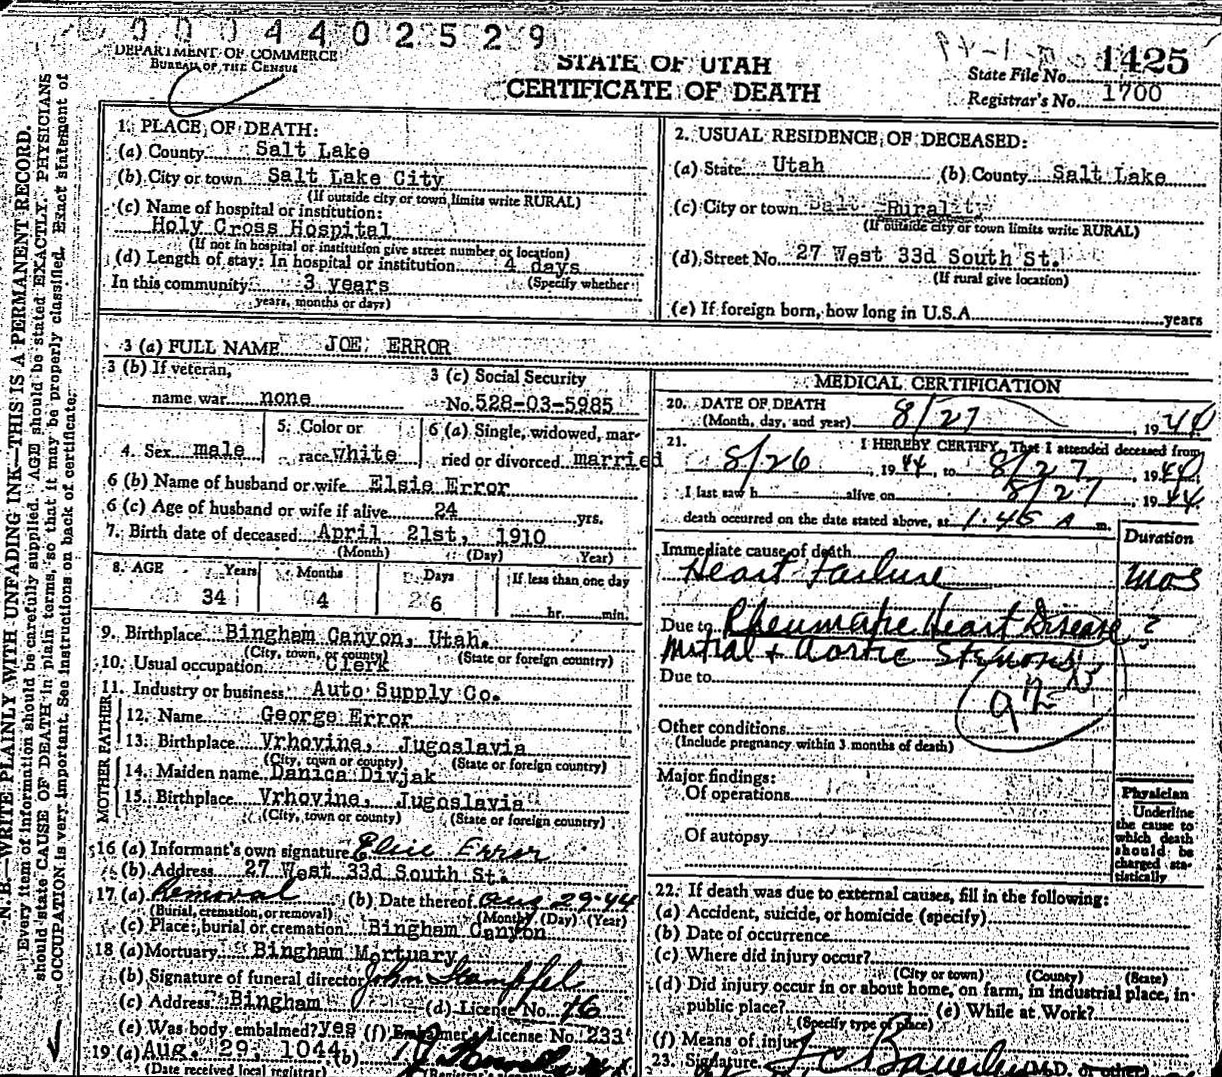 0 0 0 4 4 0 2 5 2 9
DEPARTMENT OF COMMERCE
BUREAU OF THE CENSUS
STATE OF UTAH
CERTIFICATE OF DEATH
State File No. 1425
Registrar's No. 1700
N. B.—WRITE PLAINLY WITH UNFADING INK—THIS IS A PERMANENT RECORD.
Every item of information should be carefully supplied. AGE should be stated EXACTLY. PHYSICIANS
should state CAUSE OF DEATH in plain terms, so that it may be properly classified. Exact statement of
OCCUPATION is very important. See instructions on back of certificate.
1. PLACE OF DEATH:
(a) County Salt Lake
(b) City or town Salt Lake City
(If outside city or town limits write RURAL)
(c) Name of hospital or institution:
Holy Cross Hospital
(If not in hospital or institution give street number or location)
(d) Length of stay: In hospital or institution 4 days
In this community 3 years (Specify whether
years, months or days)
2. USUAL RESIDENCE OF DECEASED:
(a) State Utah (b) County Salt Lake
(c) City or town Rural
(If outside city or town limits write RURAL)
(d) Street No. 27 West 33d South St.
(If rural give location)
(e) If foreign born, how long in U.S.A. years
3 (a) FULL NAME JOE ERROR
3 (b) If veteran,
name war none
3 (c) Social Security
No. 528-03-5985
4. Sex male
5. Color or
race white
6 (a) Single, widowed, mar-
ried or divorced married
6 (b) Name of husband or wife Elsie Error
6 (c) Age of husband or wife if alive 24 yrs.
7. Birth date of deceased April 21st, 1910
(Month) (Day) Year)
8. AGE Years Months Days If less than one day
34 4 6 hr. min.
9. Birthplace Bingham Canyon, Utah.
(City, town, or county) (State or foreign country)
10. Usual occupation Clerk
11. Industry or business Auto Supply Co.
FATHER
12. Name George Error
13. Birthplace Vrhovine, Jugoslavia
(City, town or county) (State or foreign country)
MOTHER
14. Maiden name Danica Divjak
15. Birthplace Vrhovine, Jugoslavia
(City, town or county) (State or foreign country)
16 (a) Informant's own signature Elsie Error
(b) Address 27 West 33d South St.
17 (a) Removal (b) Date thereof Aug 29-44
(Burial, cremation, or removal) (Month) (Day) (Year)
(c) Place; burial or cremation Bingham Canyon
18 (a) Mortuary Bingham Mortuary
(b) Signature of funeral director John Stampfel
(c) Address Bingham (d) License No. 76
(e) Was body embalmed? yes (f) Embalmer's License No. 233
19 (a) Aug. 29, 1044 (b)
(Date received local registrar)
MEDICAL CERTIFICATION
20. DATE OF DEATH
(Month, day, and year) 8/27 1944
21. I HEREBY CERTIFY, That I attended deceased from
8/26 1944, to 8/27, 1944
I last saw h alive on 8/27, 1944
death occurred on the date stated above, at 1:45 A m.
Duration
Immediate cause of death
Heart Failure mos
Due to Rheumatic Heart Disease, ?
Mitral + Aortic Stenosis
Due to
Other conditions
(Include pregnancy within 3 months of death)
Major findings:
Of operations
Of autopsy
Physician
Underline
the cause to
which death
should be
charged sta-
tistically
22. If death was due to external causes, fill in the following:
(a) Accident, suicide, or homicide (specify)
(b) Date of occurrence
(c) Where did injury occur?
(City or town) (County) (State)
(d) Did injury occur in or about home, on farm, in industrial place, in
public place? (e) While at Work?
(Specify type of place)
(f) Means of injury
23. Signature (M.D. or other)